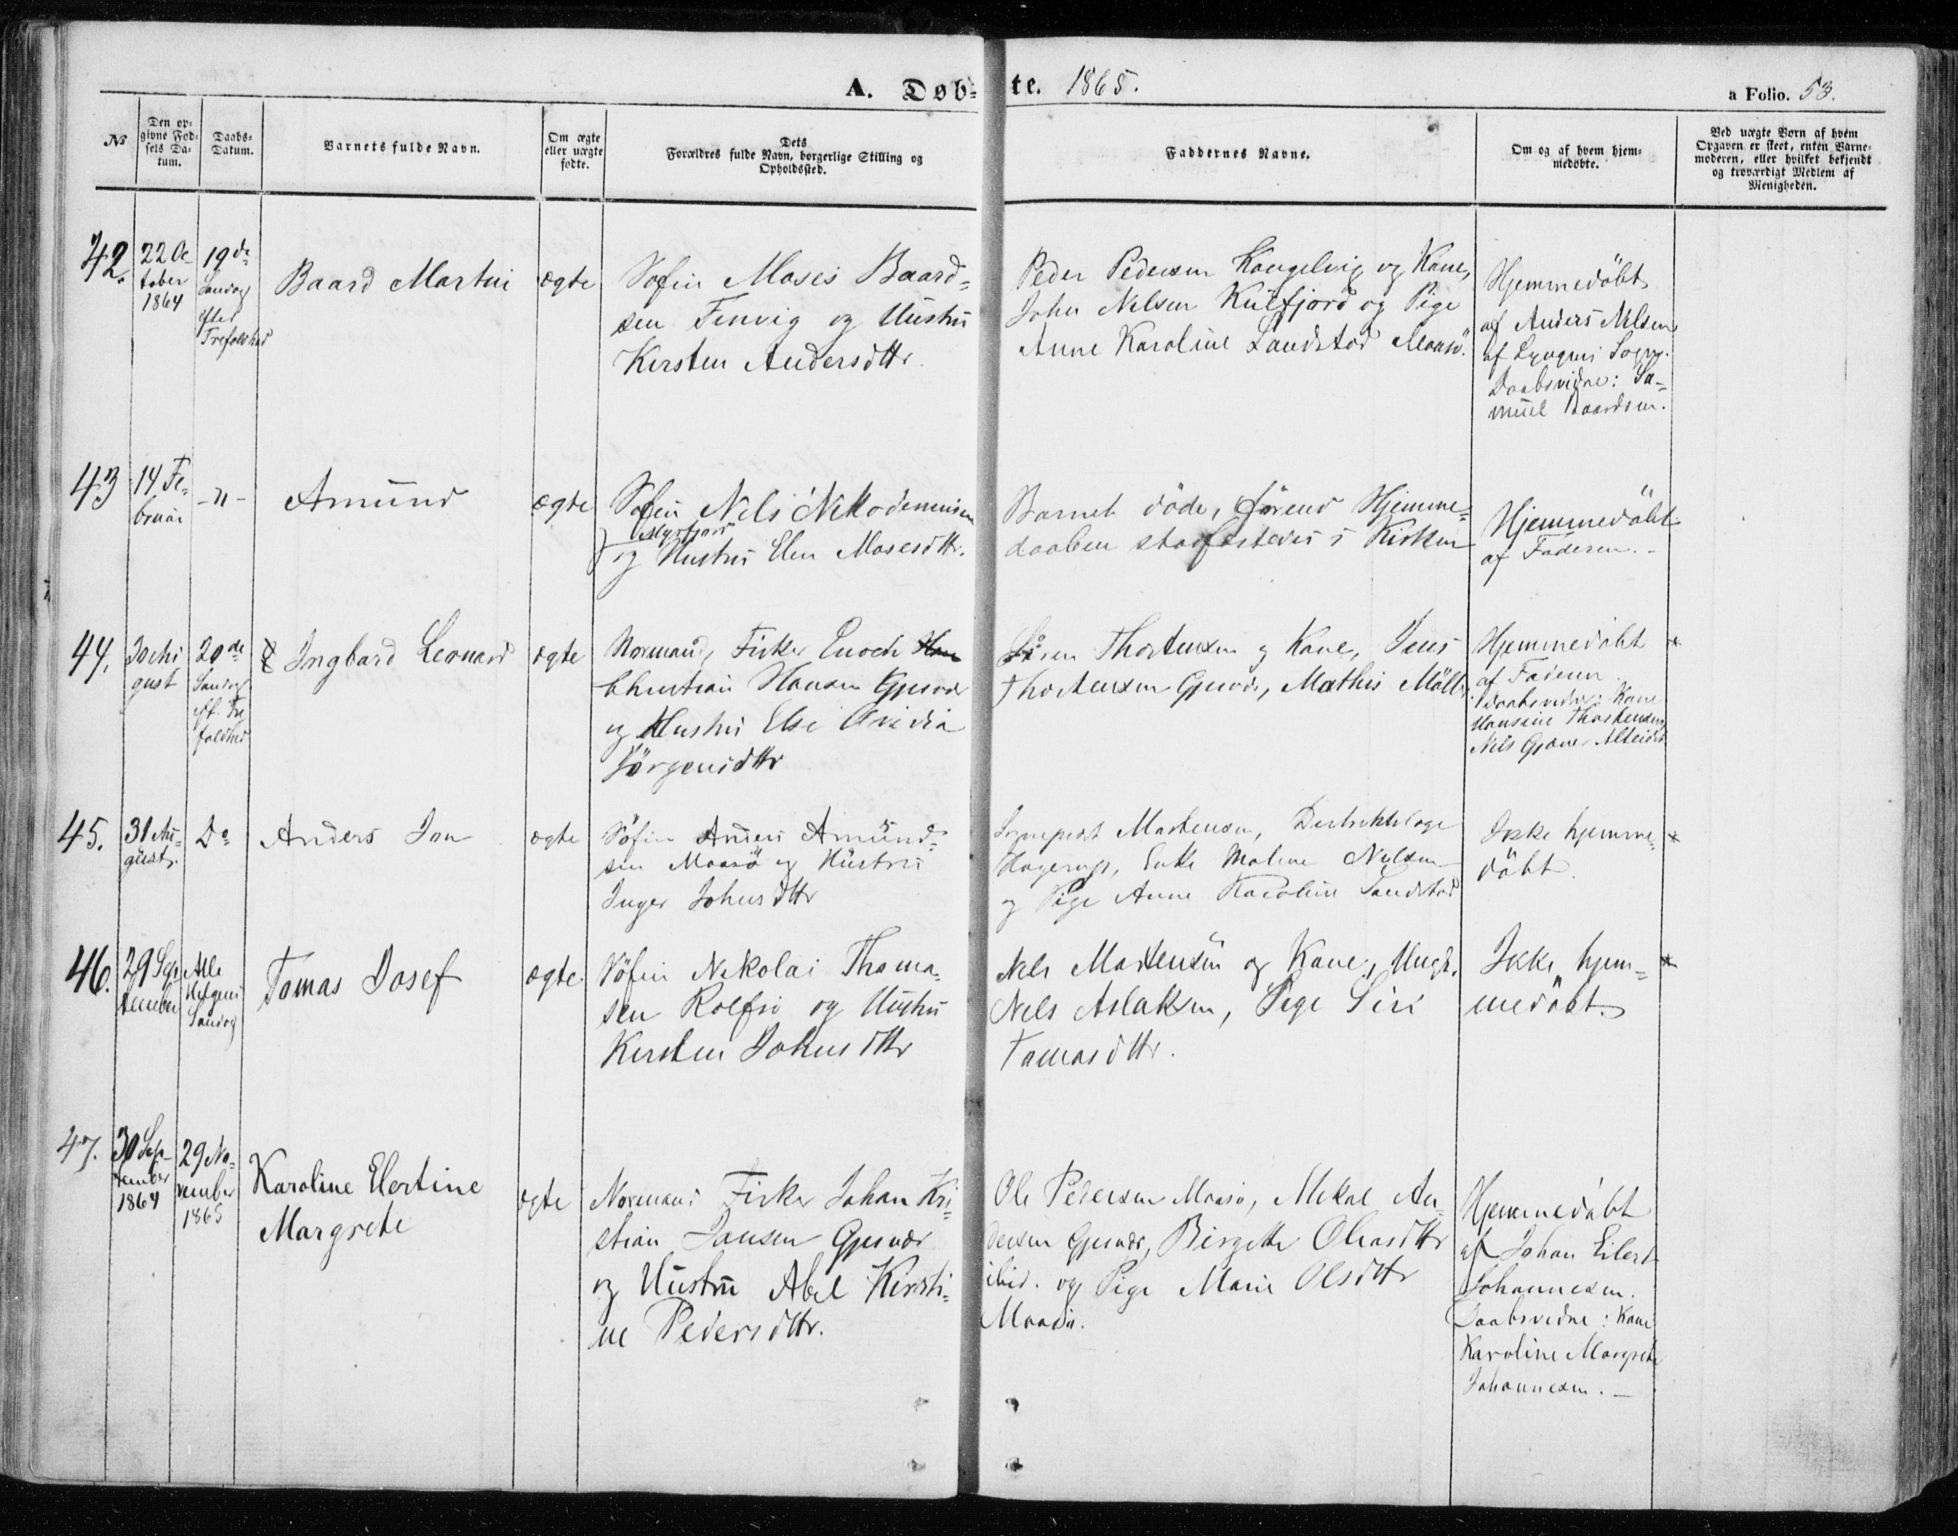 A. Døb-te. 1865.
a Folio. 53.
№
Den op-
givne Fød-
sels Da-
tum.
Daabs-
Datum.
Barnets fulde Navn.
Om ægte
eller uægte
fødte.
Dets
Forældres fulde Navn, borgerlige Stilling og
Opholdssted.
Faddernes Navne.
Om og af hvem hjem-
medøbte.
Ved uægte Born af hvem
Opgaven er skeet, enten Barne-
moderen, eller hvilket bekjendt
og troværdigt Medlem af
Menigheden.
42.
22 Oc-
tober
1864
19de
Søndag
efter
Trefoldhed
Baard Martin
ægte
Søfin Moses Baard-
sen Finvig og Hustru
Kersten Andersdttr.
Peder Pedersen Kongelvig og Kone,
John Nelsen Kulfjord og Pige
Anne Karoline Sandstad Maasö.
Hjemmedöbt
af Anders Nilsen
af Lyngens Sogn.
Daabsvidne: Sa-
muel Baardsen.
43
14 Fe-
bruar
-"-
Amund
ægte
Søfin Nels Nikodemusen
Myrfjord
og Hustru Elen Mosesdttr.
Barnet döde, förend Hjemme-
daaben stadfæstedes i Kirken
Hjemmedöbt
af Faderen.-
44.
30 Au
gust
20de
Søndag
ef. Tre
foldhed
Ingbard Leonard
ægte
Normand, Fisker Enoch
Christian Hansen Gjesvær
og Hustru Else Ovidia
Jörgensdttr
Sören Thorstensen og Kone, Jens
Thorstensen Gjesvær, Mathis Möller
Hjemmedöbt
af Faderen.
Daabsvidne: Kone
Hansine Thorstensen
Nils Gjøver Alteidet
45.
31 Au-
gust.
Do
Anders Jon
ægte
Søfin Anders Amund-
sen Maasö og Hustru
Inger Johnsdttr
Sognepræst Mortensen, Distriktslæge
Hagerup, Enke Malene Nielsen
og Pige Anne Karoline Sandstad
Ikke hjemme-
döbt.
46.
29 Sep
tember
Alle
Helgens
Søndag
Tomas Josef
ægte
Søfin Nikolai Thoma-
sen Rolfsö og Hustru
Kersten Johnsdttr
Nils Mortensen og Kone, Ungk.
Nils Aslaksen, Pige Siri
Tomasdttr.
Ikke hjem-
medöbt.
47.
30 Sep-
tember
1864
29 No-
vember
1865
Karoline Elertine
Margrete
ægte
Normand Fisker Johan Kri-
stian Jansen Gjesvær
og Hustru Abel Kersti-
ne Pedersdttr.
Ole Pedersen Maasö, Mikal An-
dersen Gjesvær, Birgitte Olsdttr
ibid. og Pige Marie Olsdttr
Maasö.
Hjemmedöbt
af Johan Eilert
Johannesen.
Daabsvidne: Kone
Karoline Margrete
Johannesen.-